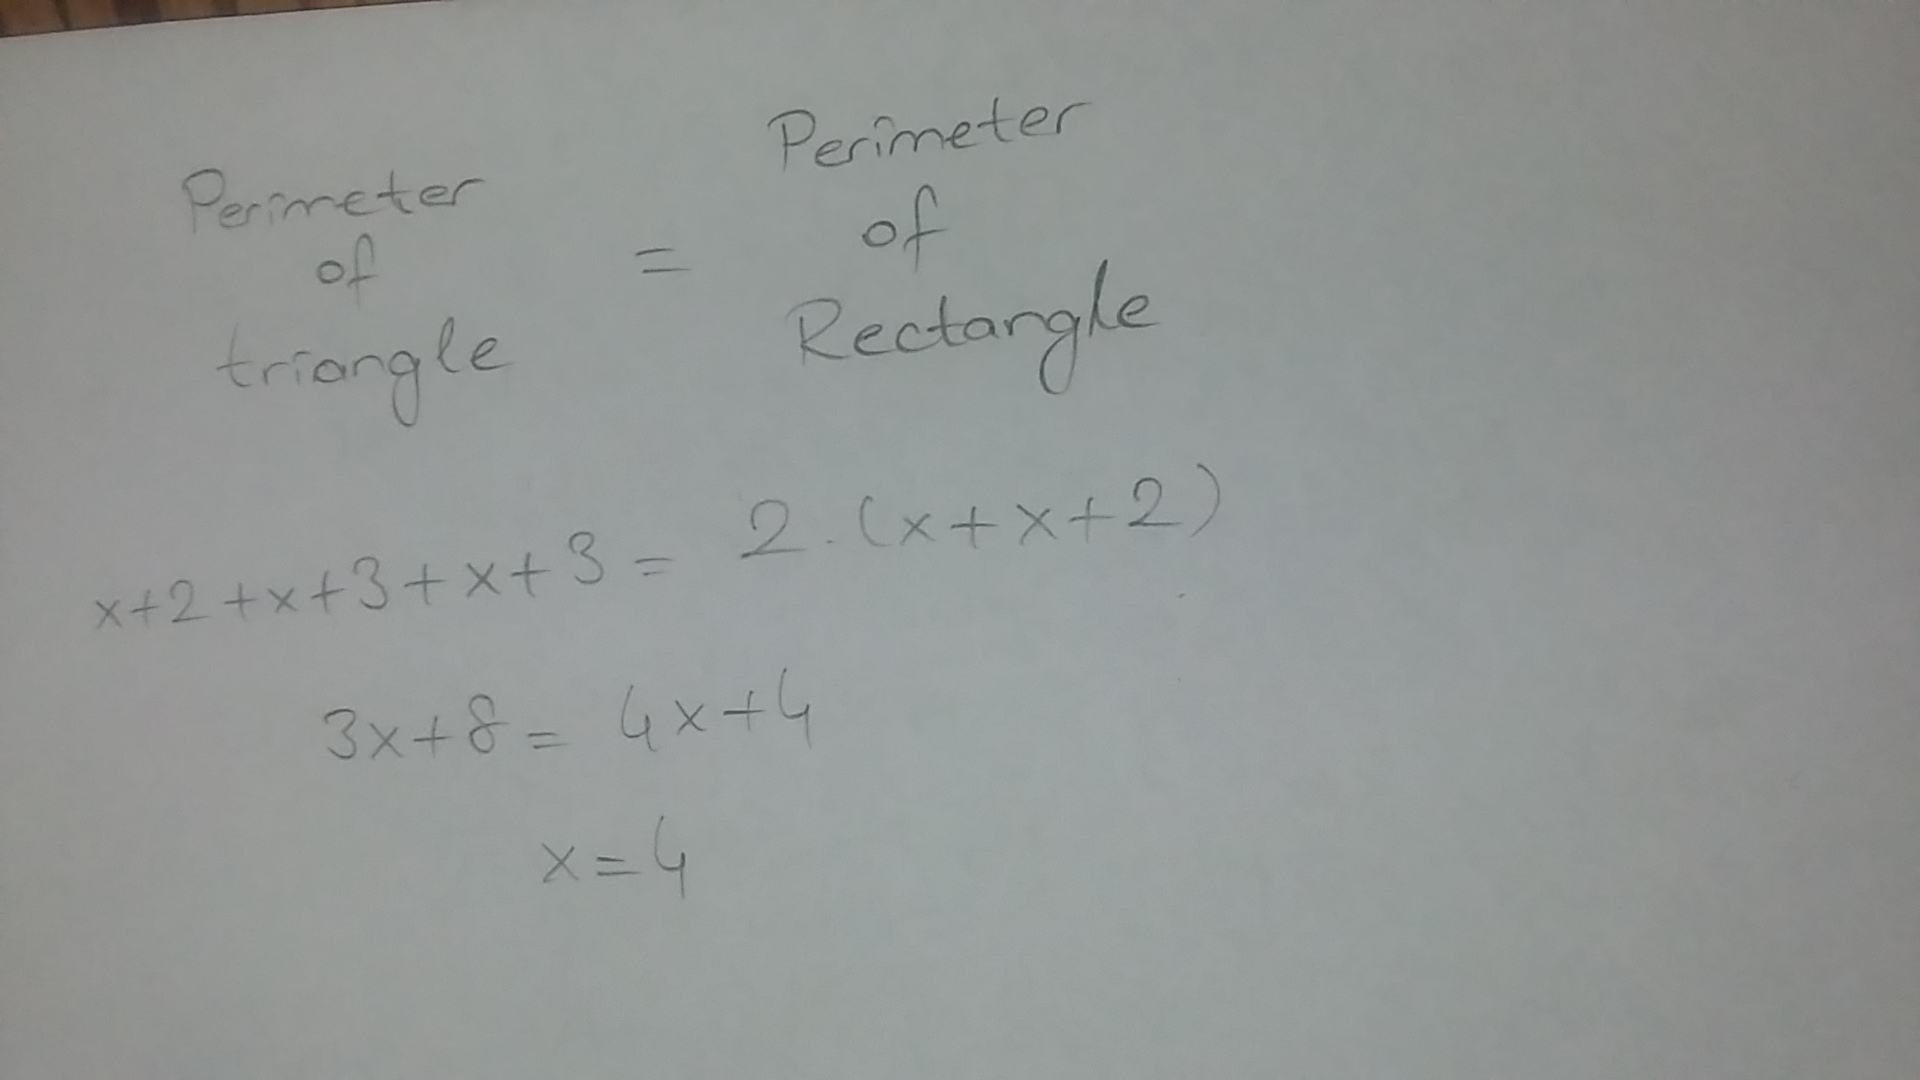 Perimeter
of
triangle
=
Perimeter
of
Rectangle
x+2+x+3+x+3= 2.(x+x+2)
3x+8= 4x+4
x=4